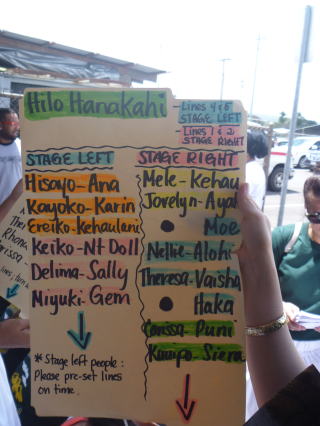 Hilo Hanakahi
- Lines 4 & 5
STAGE LEFT
- Lines 1 & 2
STAGE RIGHT
STAGE LEFT
Hisayo-Ana
Kayoko-Karin
Ereiko-Kehaulani
Keiko-Nt Doll
Delima-Sally
Miyuki-Gem
* Stage left people:
Please pre-set lines
on time.
STAGE RIGHT
Mele-Kehau
Jovelyn-Ayat
Moe
Nellie-Alohi
Theresa-Vaisha
Haka
Carissa Puni
Kanipo-Siera